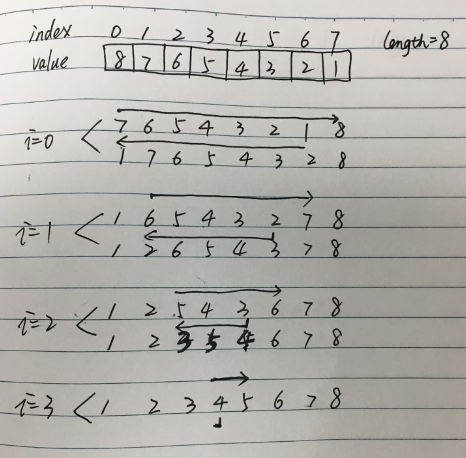 index 0 1 2 3 4 5 6 7 length=8
value 8 7 6 5 4 3 2 1
i=0 < 7 6 5 4 3 2 1 8
1 7 6 5 4 3 2 8
i=1 < 1 6 5 4 3 2 7 8
1 2 6 5 4 3 7 8
i=2 < 1 2 5 4 3 6 7 8
1 2 3 5 4 6 7 8
i=3 < 1 2 3 4 5 6 7 8